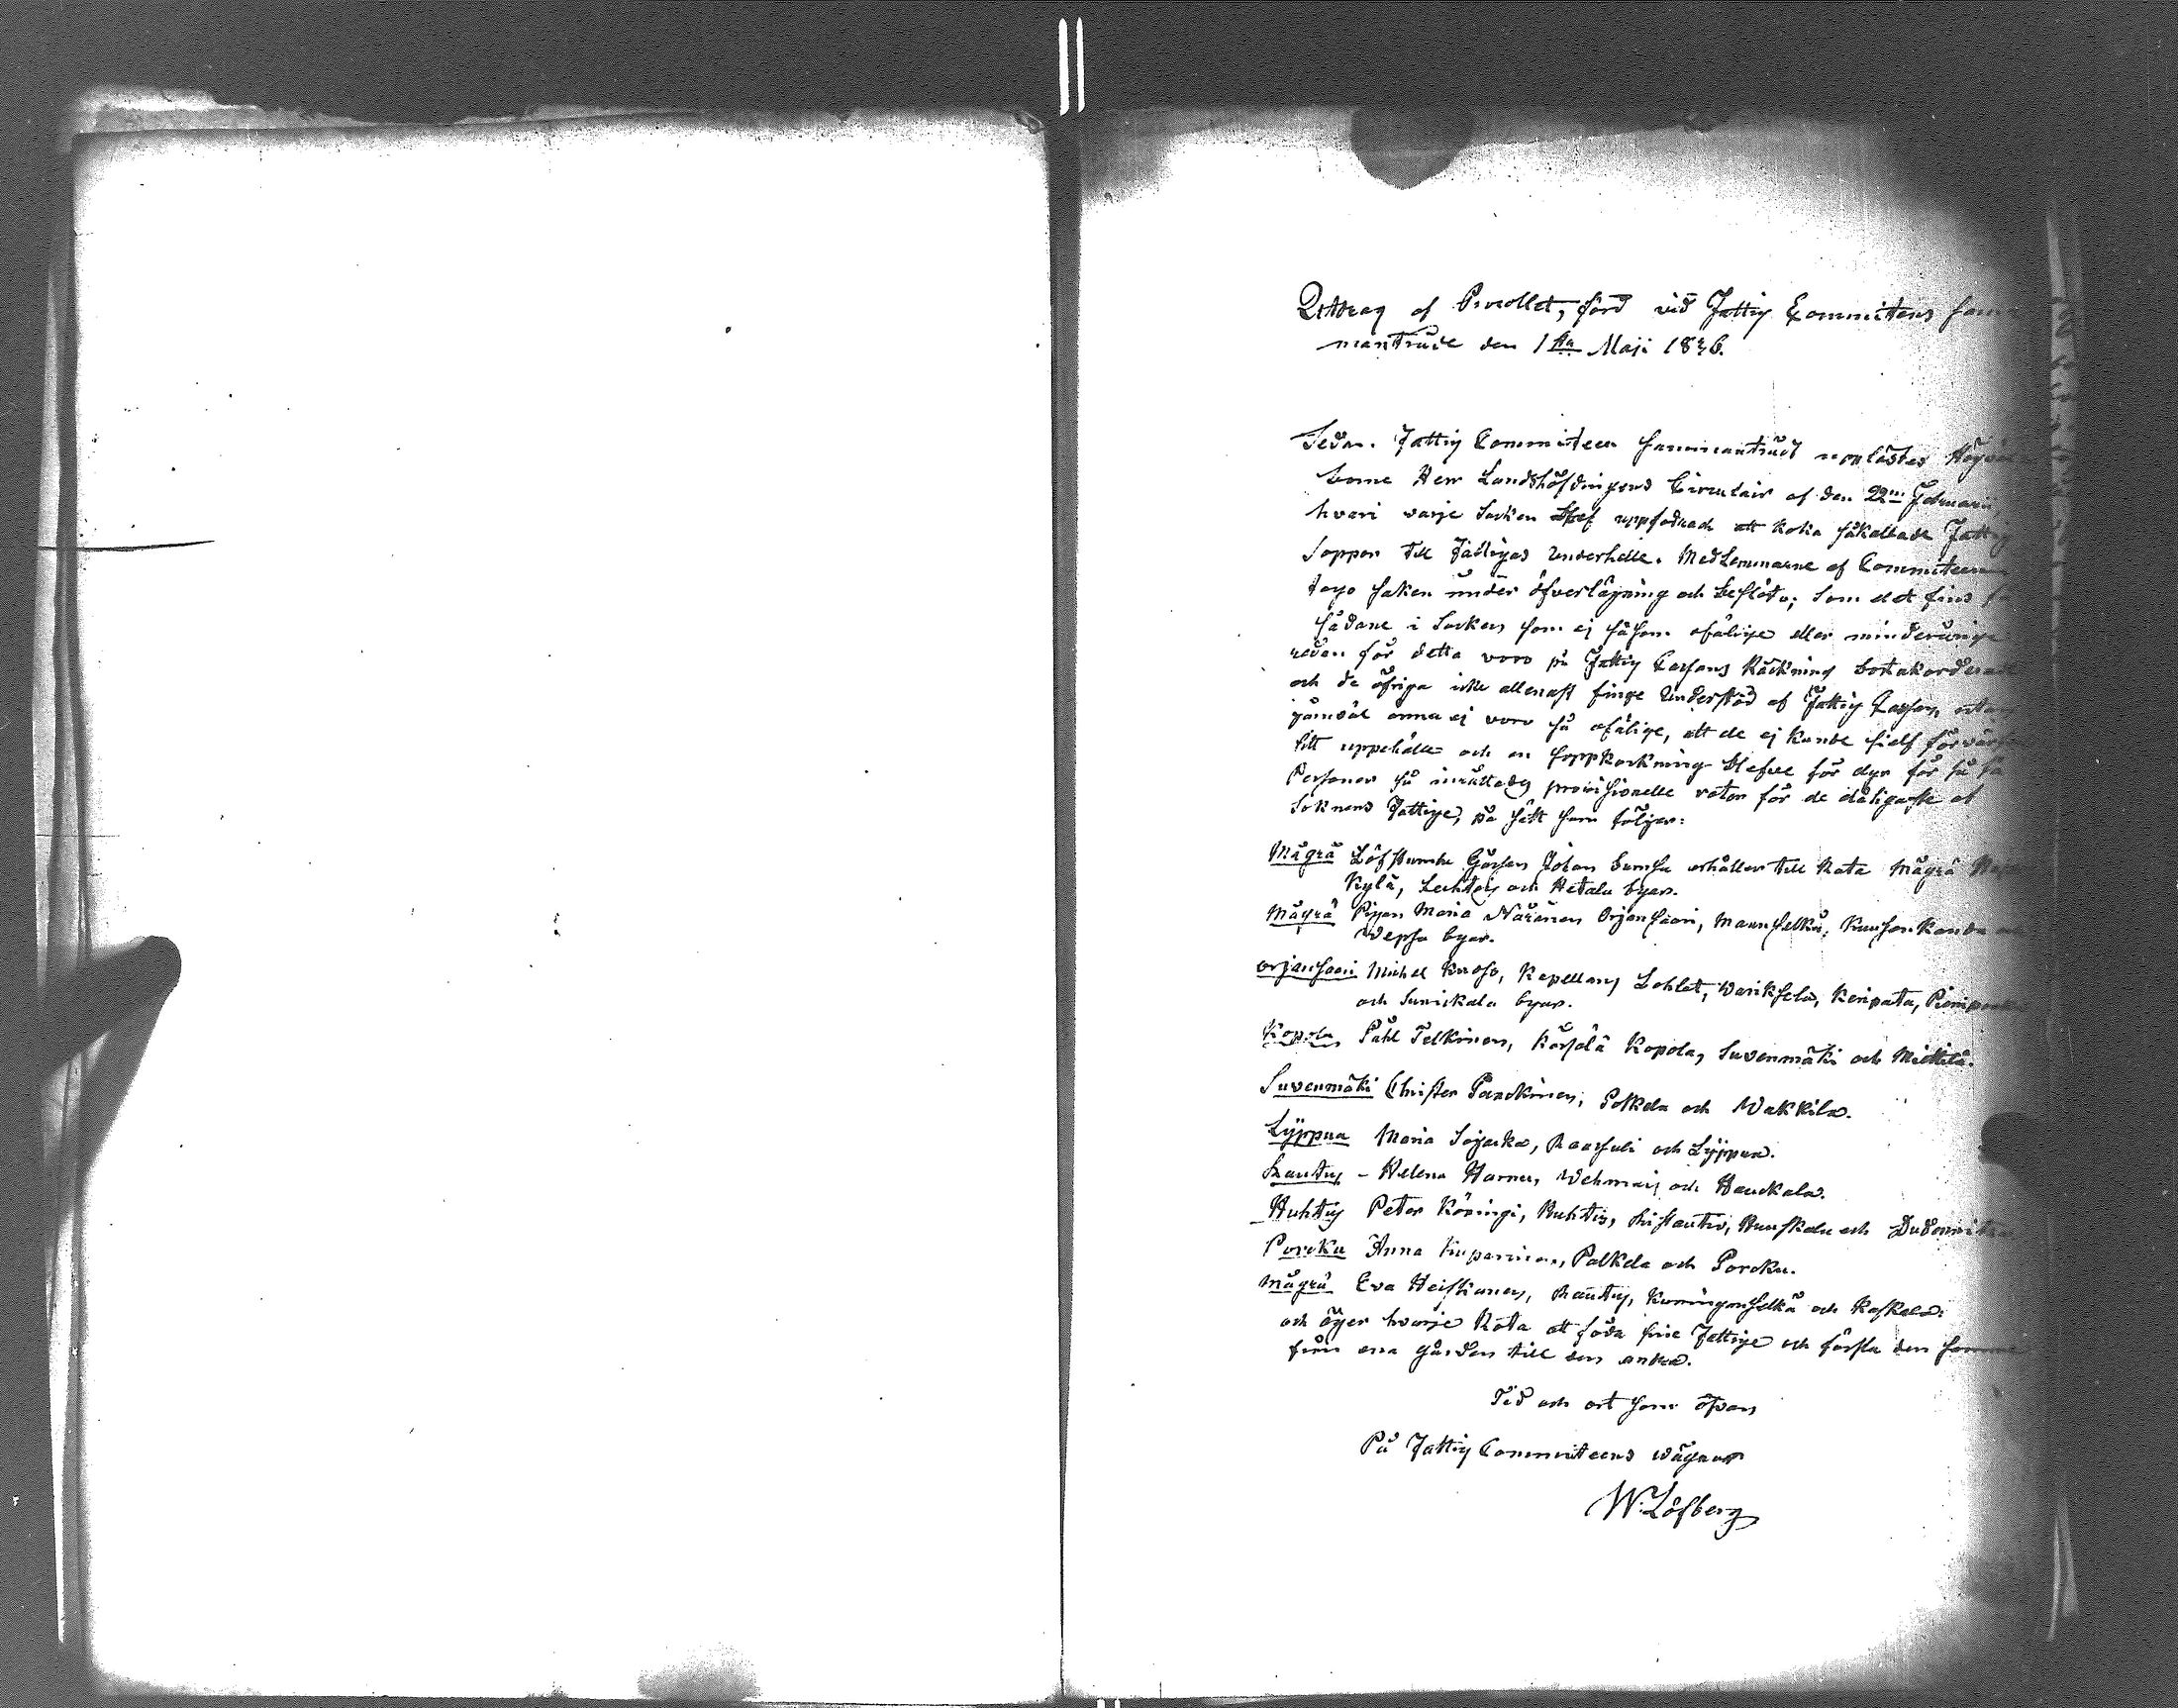 Utdrag af Procollet, förd vid Fattig Commitens sam
manträde den 1sta Maji 1836.
Sedan Fattig Committeen sammanträdt upplästes Högväl
borne Herr Landshöfdingens Circulair af den 22ni Februari
hvari varje Socken blef uppfodrad att koka såkallade Fattig
Soppor till Fattigas Underhelle. Medlemmarne af Committeen
togo saken under öfverlägning och beslöto; som det fins
sådane i Socken som ej såsom ofälige eller minderårige
redan för detta voro på Fattig Cassans Räckning bortakorderade
och de öfriga icke allenast finge Understöd af Fattig Cassan, utan
jämväl änna ej voro så ofälige, att de ej kunde sielf förvärfva
sitt uppehälle och en soppkockning blefve för dyr för så få
Personer så inrättades provisionelle rotar för de dåligaste af
Soknens Fattige, på sätt som följer:
Mägrä Löfstumbe Gossen Johan Sumsa erhåller till Rota Mägrä
Kylä, Lechtois och Hetala byar.
Mägrä Pigan Maria Näränen Orjansaari, Mannselkä, Kunsankanda
Wepsa byar.
Orjansaari Michel Kurso, Kapellans Bohlet, Wariksela, Keripata,
och Suniskala byar.
Kopola Påhl Telkinen, Korsolä Kopola, Suvenmäki och Miettilä.
Suvenmäki Christer Pandkinen, Potkela och Wakkila.
Lyppua Maria Sojacka, Raasuli och Lyppua.
Rautus – Helena Harnen, Wehmais och Hauckala.
Huhtis Peter Köningi, Huhtis, Ristautio, Huuskala och
Poroku Anna Kuparinen, Palkela och Poroku.
Mägrä Eva Heiskanen, Rautus, Kuningonselkä och Koskela:
och äger hvarje Rota att föda sine Fattige och forsla den samma
från ena gården till den andra.
Tid och ort som ofvan
På Fattig Committeens vägnar
W. Löfberg